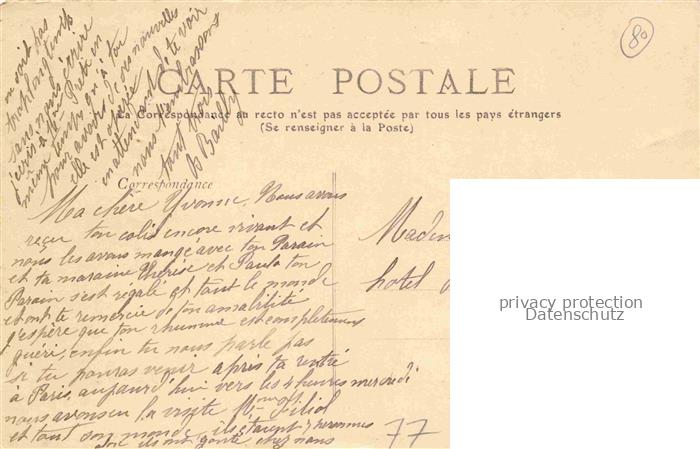 80
CARTE POSTALE
La Correspondance au recto n'est pas acceptée par tous les pays étrangers
(Se renseigner à la Poste)
Correspondance
Ma chère Yvonne, Nous avons
reçu ton colis encore vivant et
nous les avons mangé avec ton Parain
et ta maraine Thérèse et Paulo ton
Parain s'est régalé et tout le monde
et ont te remercie de ton amabilité
j'espère que ton rhumme est completement
guéri, enfin tu nous parle pas
si tu pouras venir après ta rentré
à Paris, aujourd'hui vers les 4 heures mercredi
nous avons eu la visite Mme Filiol
et tout son monde, ils étaient 7 personnes
ils ont gouté chez nous
ne soit pas
trop longtemps
sans nous écrire
j'écris à ton
même temps qu'à toi
pour avoir de vos nouvelles
elle est
en attendant de te voir
nous t'embrassons
tout trois
Bailly
Madem
hotel
77
privacy protection
Datenschutz